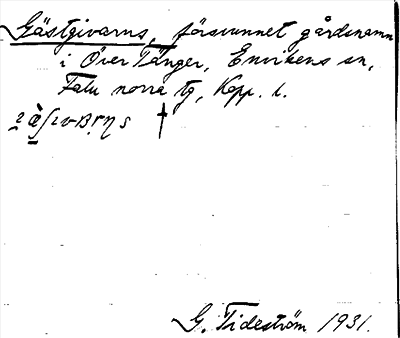 Gästgivarns, försvunnet gårdsnamn
i Över Tänger, Envikens sn,
Falu norra tg, Kopp. l.
G. Tideström 1931.